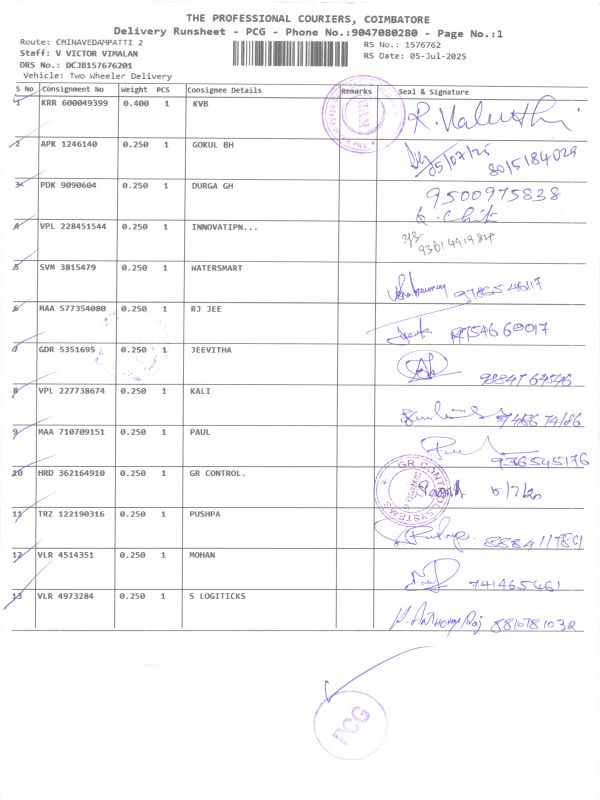 THE PROFESSIONAL COURIERS, COIMBATORE
Delivery Runsheet - PCG - Phone No.:9047080280 - Page No.:1
Route: CHINAVEDAMPATTI 2
RS No.: 1576762
Staff: V VICTOR VIMALAN
RS Date: 05-Jul-2025
DRS No.: DCJB157676201
Vehicle: Two Wheeler Delivery
S No Consignment No Weight PCS Consignee Details Remarks Seal & Signature
1 KRR 600049399 0.400 1 KVB KVB
2 APK 1246140 0.250 1 GOKUL BH 05/07/25 8015184029
3 PDK 9090604 0.250 1 DURGA GH 9500975838
4 VPL 228451544 0.250 1 INNOVATIPN... 9361441984
5 SVM 3815479 0.250 1 WATERSMART
6 MAA 577354080 0.250 1 RJ JEE
7 GDR 5351695 0.250 1 JEEVITHA
8 VPL 227738674 0.250 1 KALI
9 MAA 710709151 0.250 1 PAUL 936545176
10 HRD 362164910 0.250 1 GR CONTROL. GR CONTROL SYSTEMS
11 TRZ 122190316 0.250 1 PUSHPA
12 VLR 4514351 0.250 1 MOHAN 741465461
13 VLR 4973284 0.250 1 S LOGITICKS 8810781032
PCG